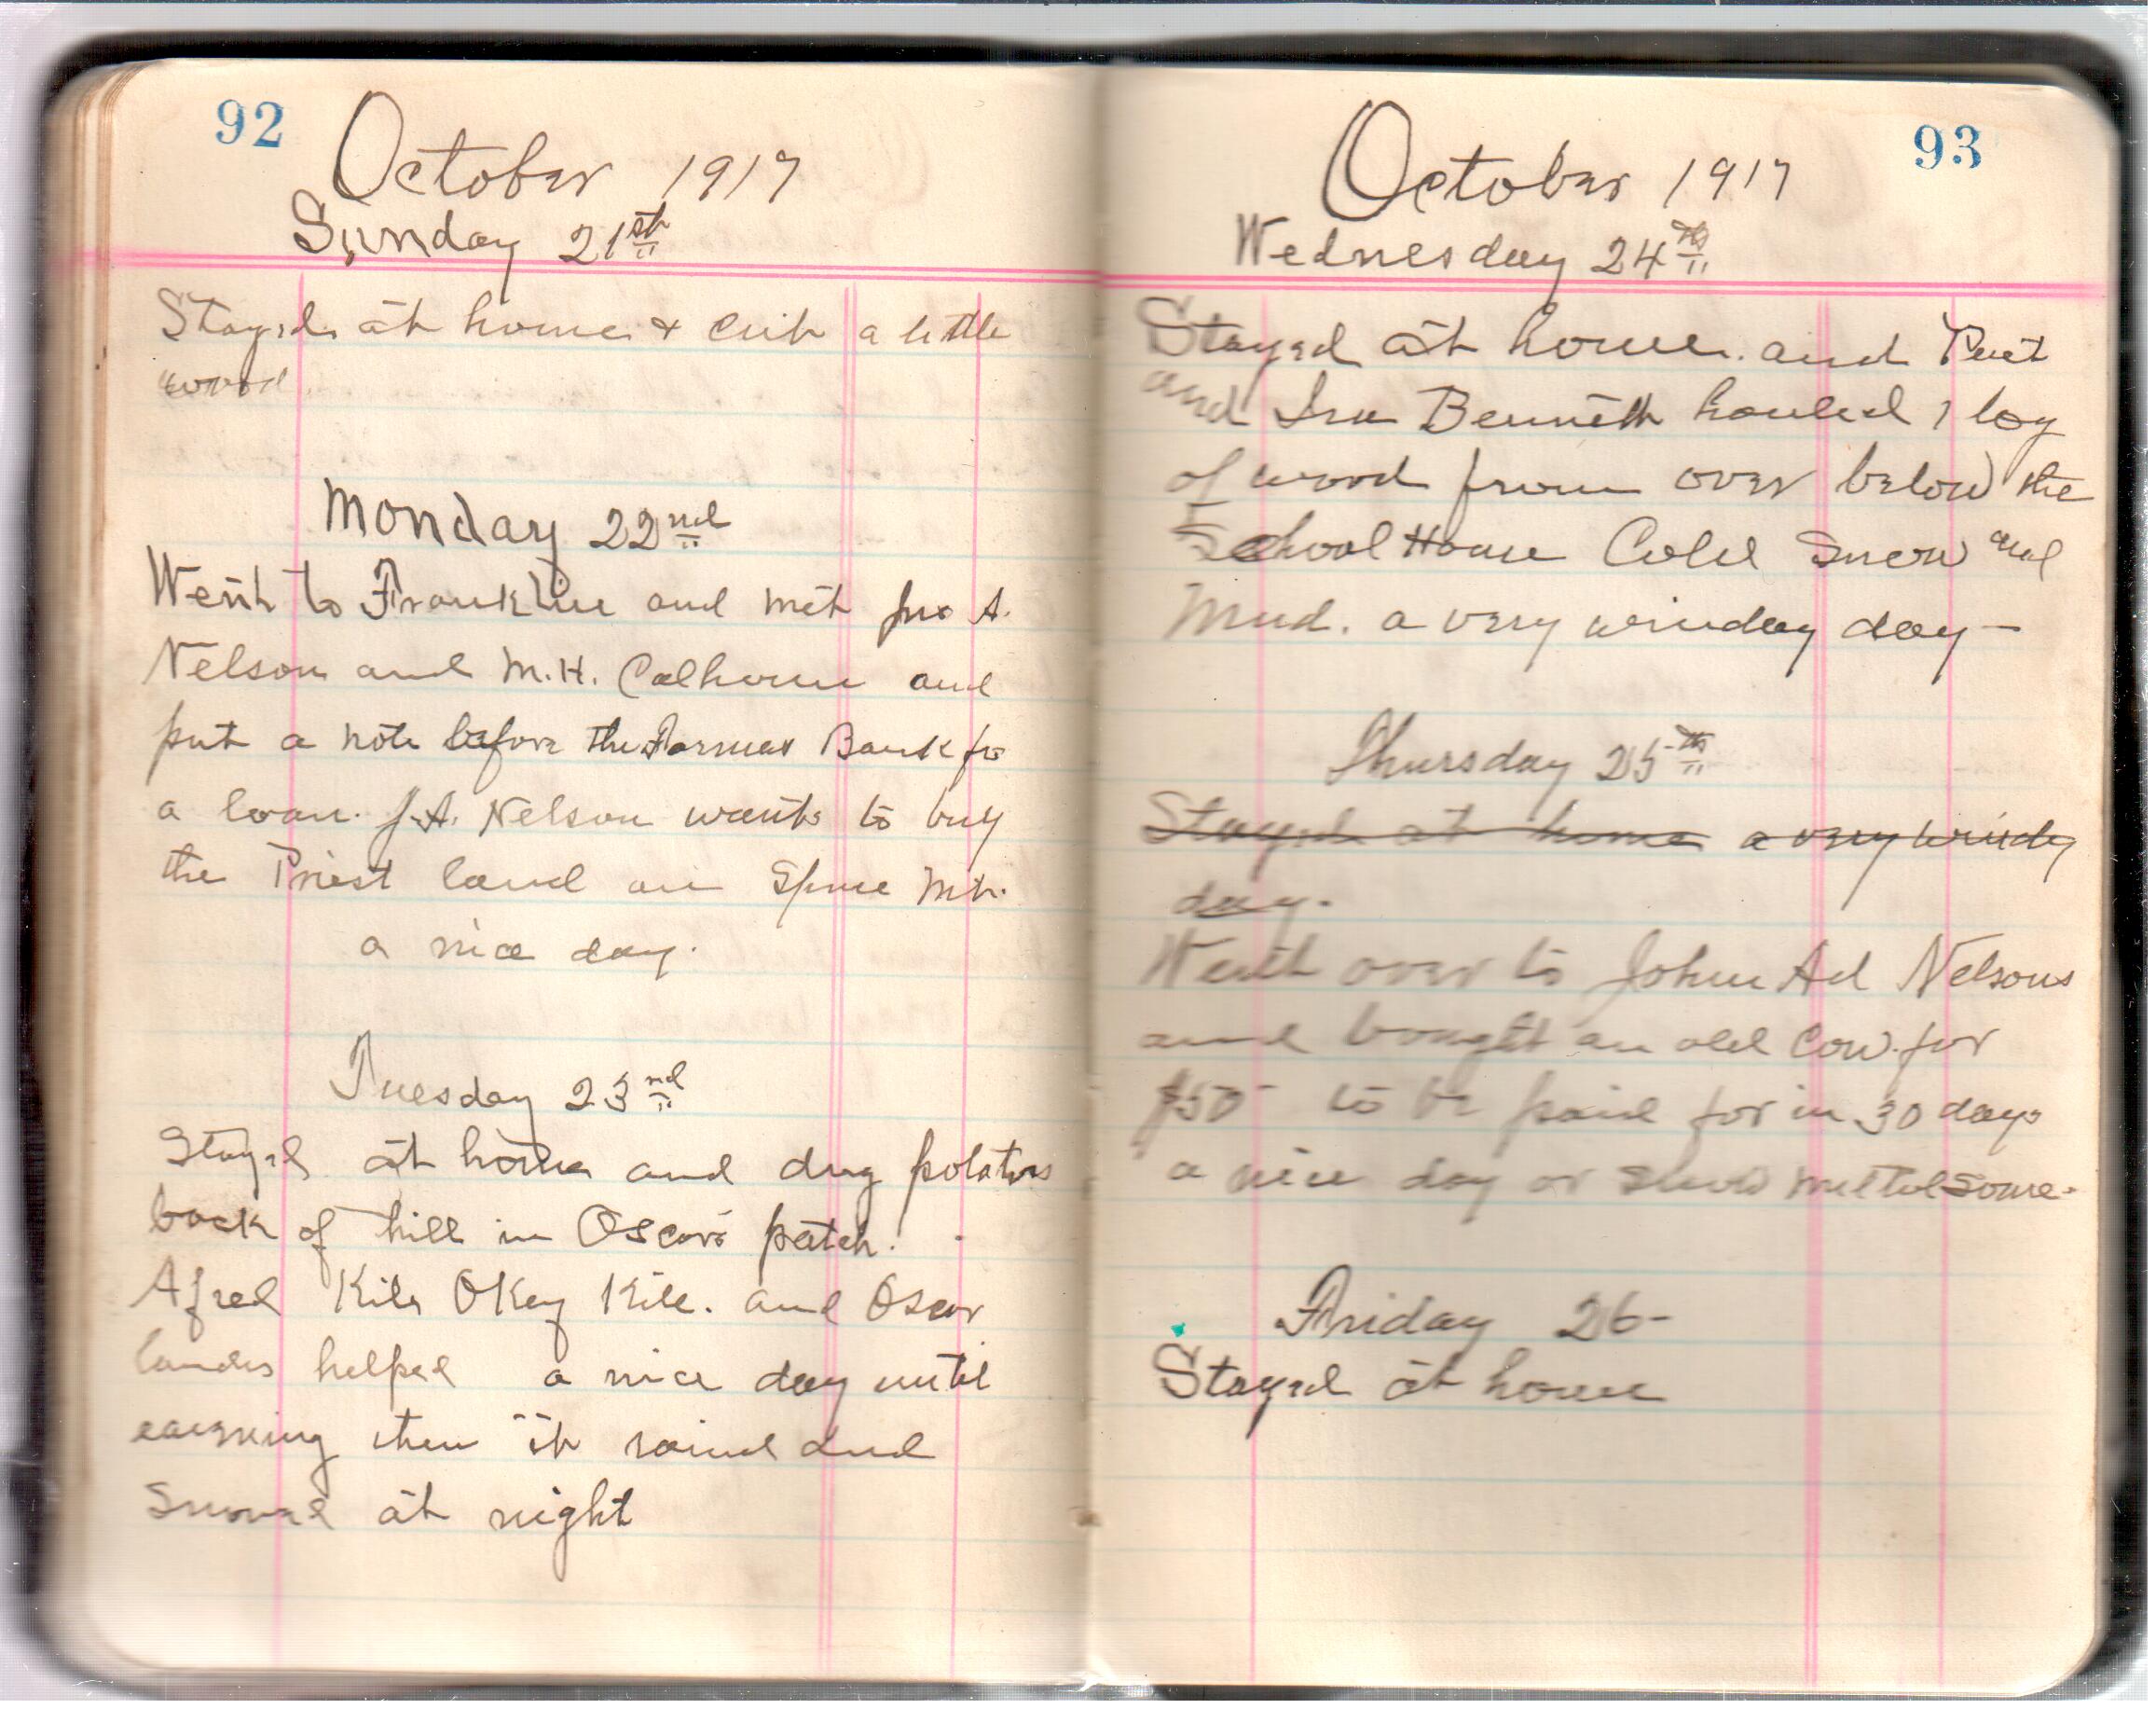 92
October 1917
Sunday 21st
Stayed at home & cut a little
wood
Monday 22nd
Went to Franklin and met Jno A.
Nelson and M.H. Calhoun and
put a note before the Farmas Bank for
a loan. J.A. Nelson wants to buy
the Priest land on Spruce Mt.
a nice day.
Tuesday 23rd
Stayed at home and dug potatoes
back of hill in Oscars patch.
Afred Kile Okey Kile. and Oscar
Landes helped a nice day until
then it rained and
Snowed at night
93
October 1917
Wednesday 24th
Stayed at home. and
and Ira Bennett hauled 1 log
of wood from over below the
School House Cold Snow and
Mud. a very winday day –
Thursday 25th
Stayed at home a very windy
day.
Went over to John Ad Nelsons
and bought an old Cow for
$50 to be paid for in 30 days
a nice day or Snow melted Some.
Friday 26-
Stayed at home